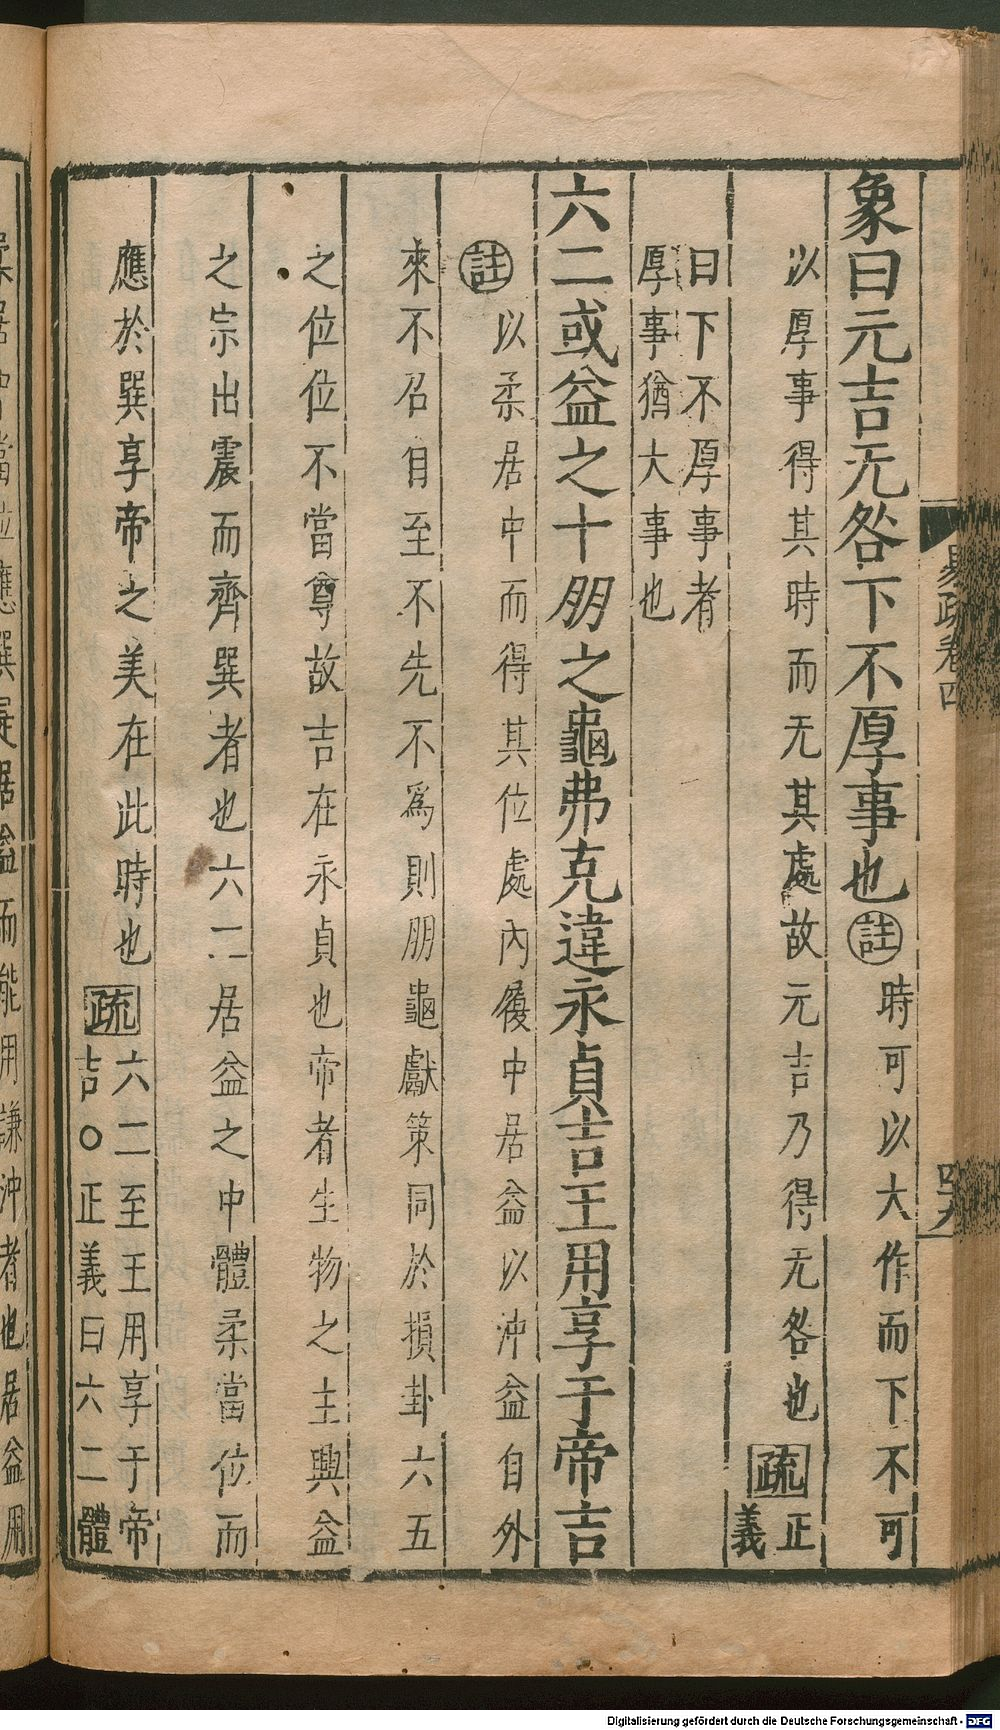 易疏卷四
四九
象曰元吉无咎下不厚事也註時可以大作而下不可
以厚事得其時而无其處故元吉乃得无咎也疏正義
曰下不厚事者
厚事猶大事也
六二或益之十朋之龜弗克違永貞吉王用享于帝吉
註以柔居中而得其位處內履中居益以沖益自外
來不召自至不先不爲則朋龜獻策同於損卦六五
之位位不當尊故吉在永貞也帝者生物之主興益
之宗出震而齊巽者也六二居益之中體柔當位而
應於巽享帝之美在此時也疏六二至王用享于帝
吉○正義曰六二體
柔居中當位應巽是居益而能用謙沖者也居益用
Digitalisierung gefördert durch die Deutsche Forschungsgemeinschaft - DFG